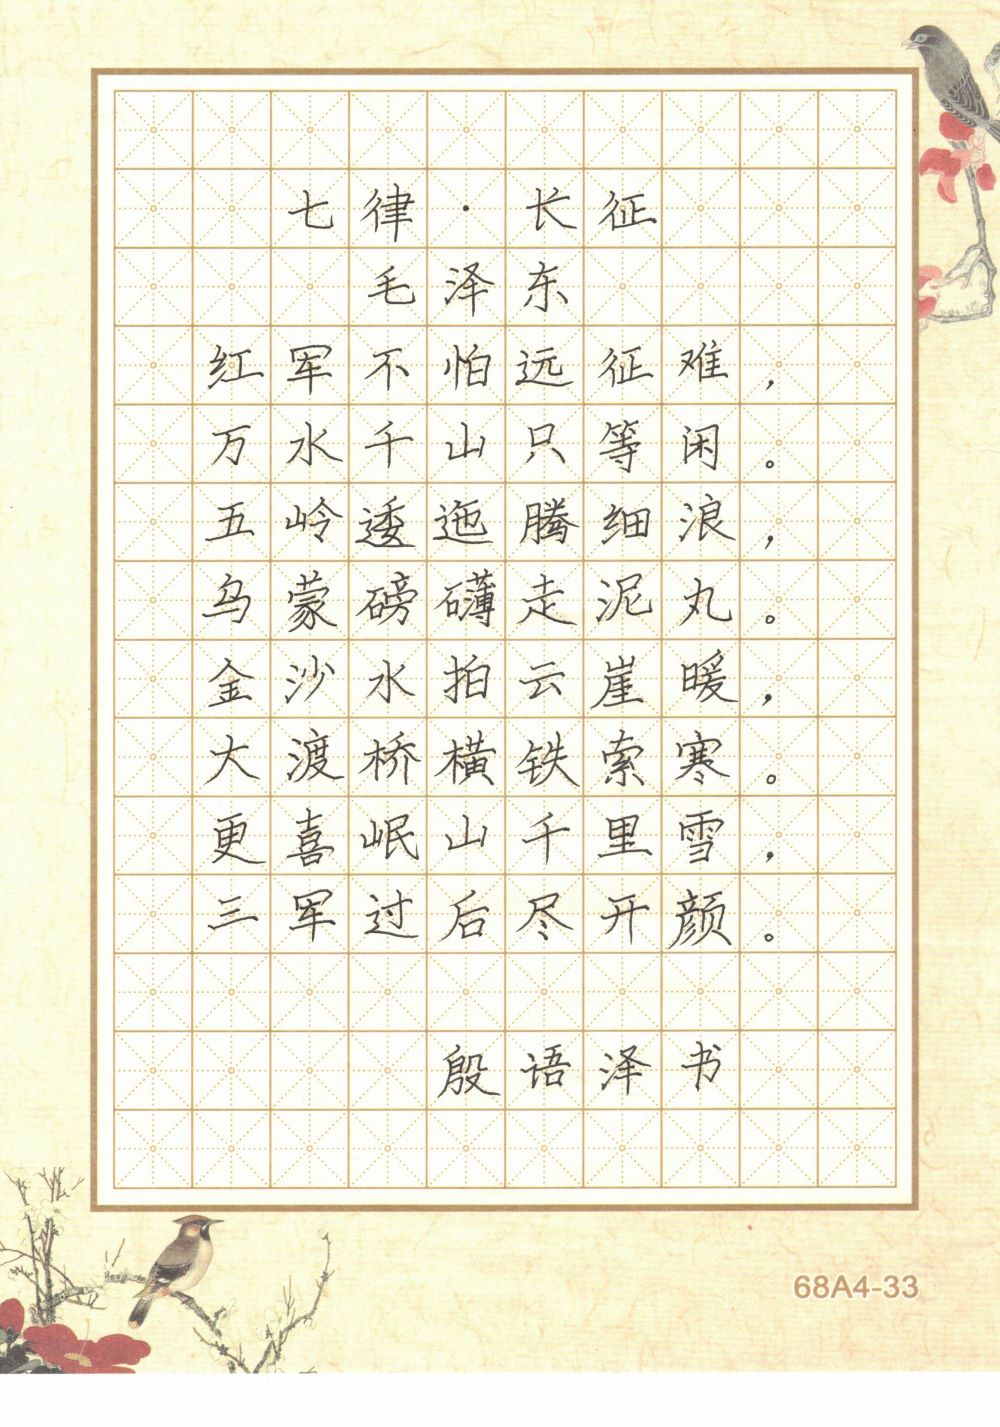 七律·长征
毛泽东
红军不怕远征难，
万水千山只等闲。
五岭逶迤腾细浪，
乌蒙磅礴走泥丸。
金沙水拍云崖暖，
大渡桥横铁索寒。
更喜岷山千里雪，
三军过后尽开颜。
殷语泽书
68A4-33